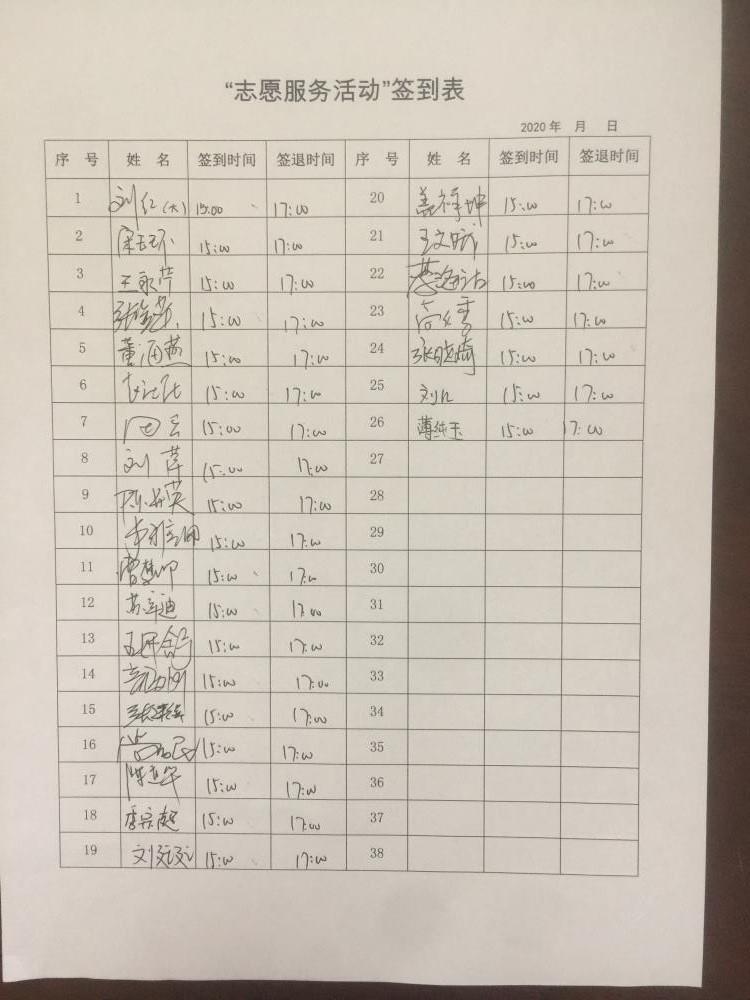 “志愿服务活动”签到表
2020 年 月 日
序 号 姓 名 签到时间 签退时间 序 号 姓 名 签到时间 签退时间
1 刘红(大) 15:00 17:00 20 15:00 17:00
2 15:00 17:00 21 王文斌 15:00 17:00
3 王永芹 15:00 17:00 22 15:00 17:00
4 15:00 17:00 23 15:00 17:00
5 董海燕 15:00 17:00 24 张晓琦 15:00 17:00
6 15:00 17:00 25 刘红 15:00 17:00
7 15:00 17:00 26 薄纯玉 15:00 17:00
8 刘萍 15:00 17:00 27
9 15:00 17:00 28
10 15:00 17:00 29
11 15:00 17:00 30
12 15:00 17:00 31
13 15:00 17:00 32
14 15:00 17:00 33
15 15:00 17:00 34
16 15:00 17:00 35
17 15:00 17:00 36
18 李宗超 15:00 17:00 37
19 15:00 17:00 38